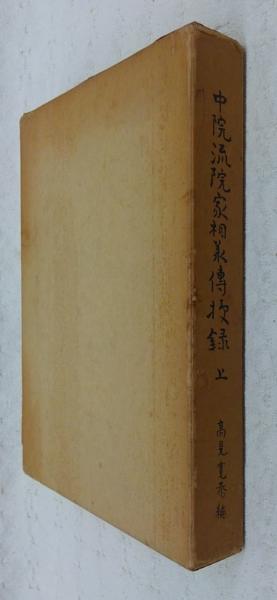 中院流院家相承傳授録 上
高見寛恭編